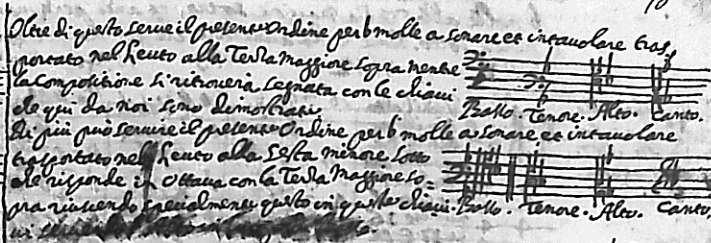 Oltre di questo serve il presente Ordine per b molle a sonare et intavolare tras
portato nel Leuto alla Terza Maggiore sopra mentre
la compositione si ritroverà segnata con le chiavi
che qui da noi sono dimostrati
Basso. Tenore. Alto. Canto.
Di più può servire il presente Ordine per b molle a sonare et intavolare
trasportato nel Leuto alla Sesta minore sotto
che risponde in Ottava con la Terza Maggiore so=
pra riuscendo specialmente questo in queste chiavi.
Basso. Tenore. Alto. Canto.